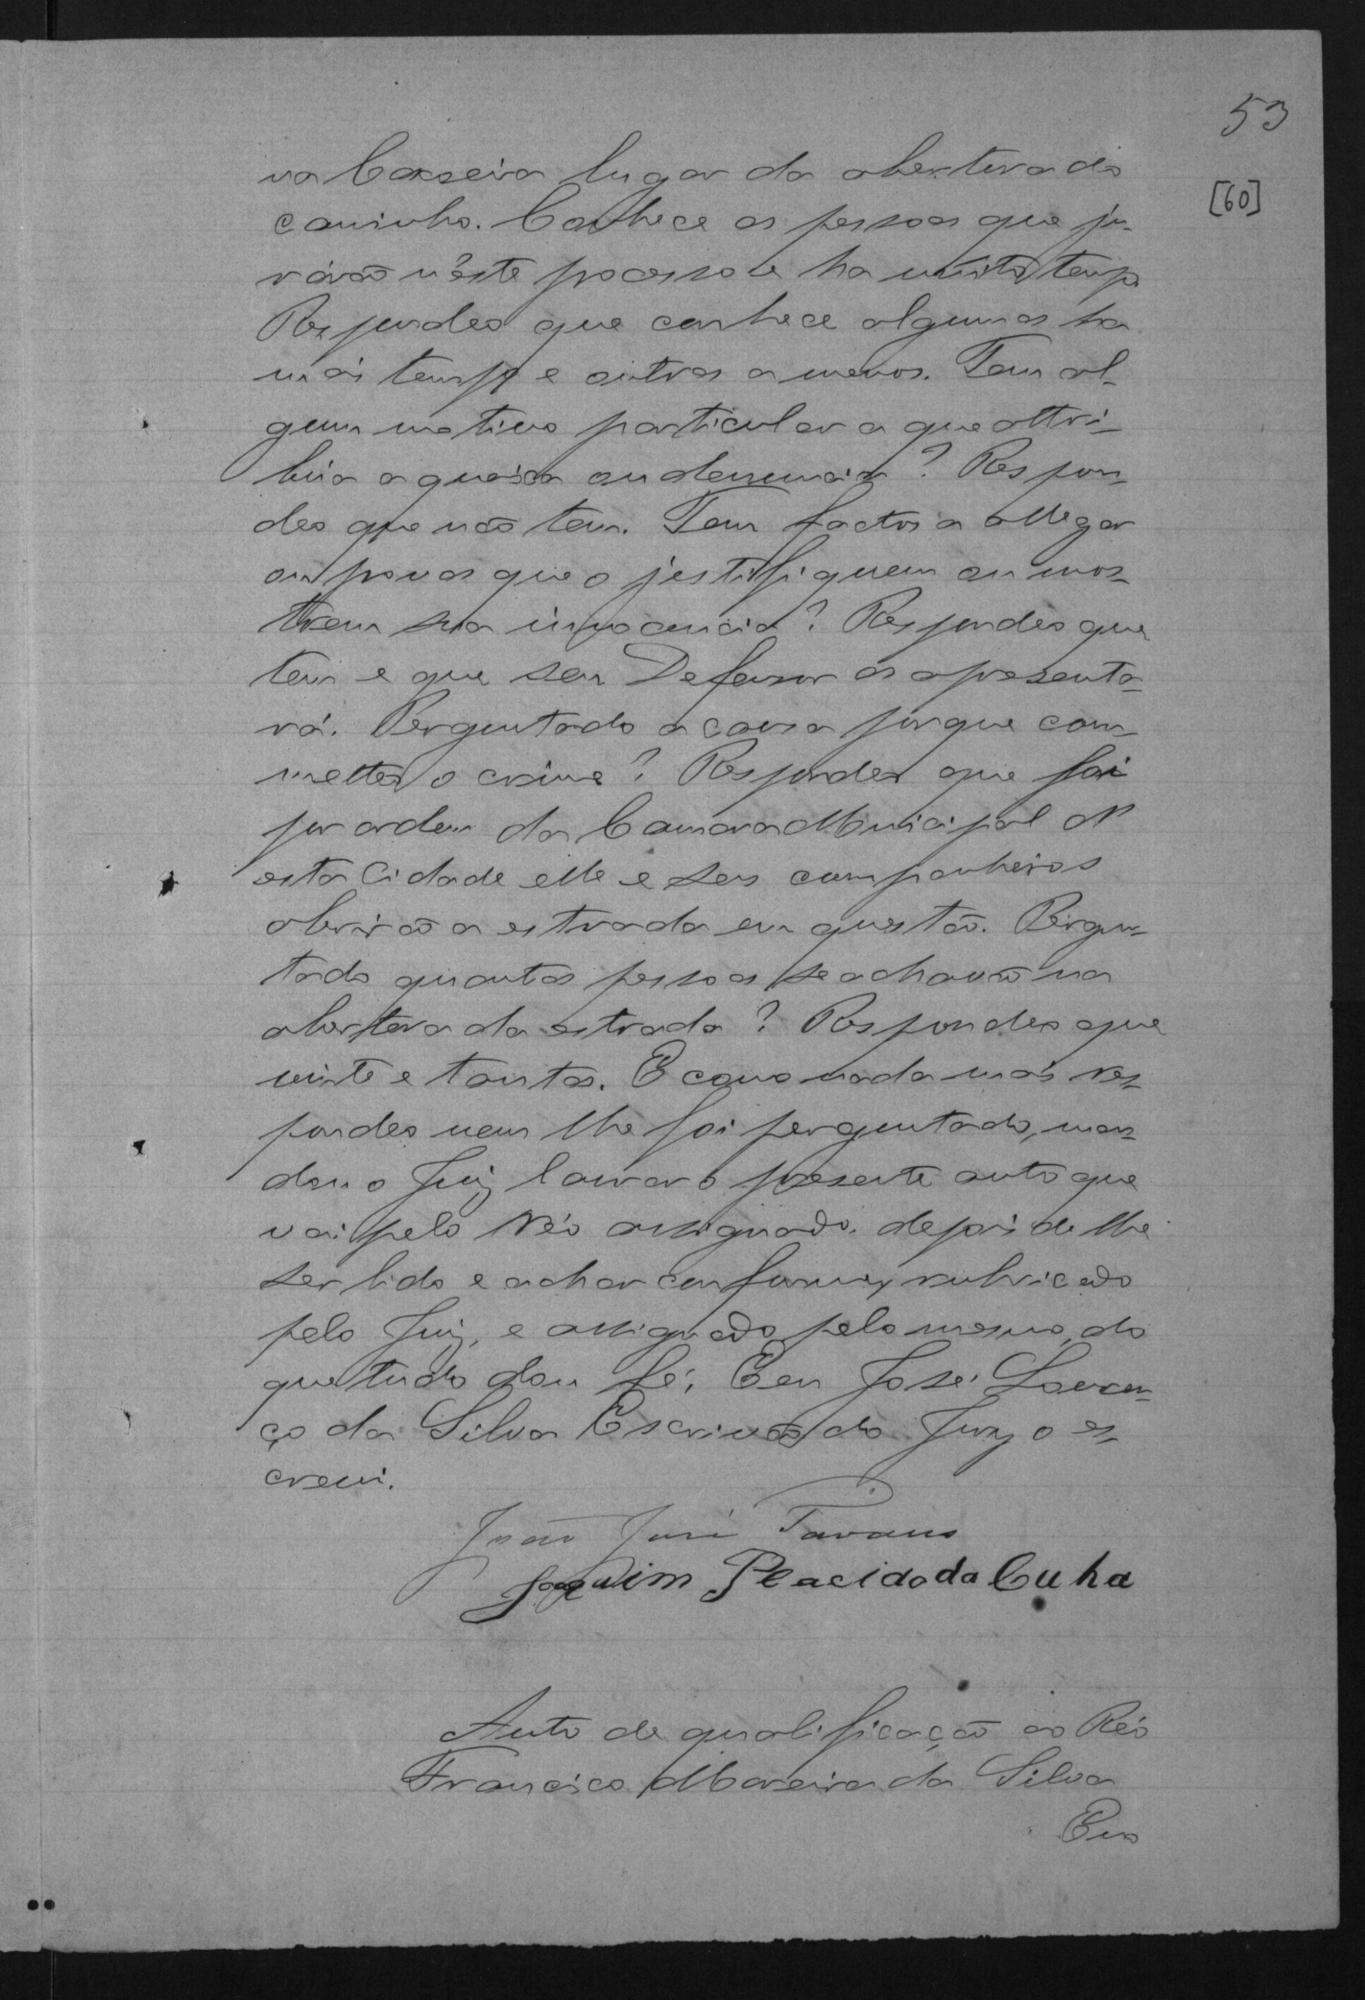 53
[60]
na Caxseira lugar da abertura do
caminho. Conhece as pessoas que ju-
rárão n'este processo e ha muito tempo
Respondeo que conhece algumas ha
mais tempo e outras a menos. Tem al-
gum motivo particular a que attri-
búa a queixa ou denuncia? Respon-
deo que não tem. Tem factos a allegar
ou provas que o justifiquem ou mos-
trem sua innocencia? Respondeo que
tem e que seu Defensor as apresenta-
rá. Perguntado a causa porque com-
metteo o crime? Respondeo que foi
por ordem da Camara Municipal N'
esta Cidade elle e seus companheiros
abrirão a estrada em questão. Pergun-
tado quantas pessoas se achavão na
abertura da estrada? Respondeo que
vinte e tantas. E como nada mais res-
pondeo nem lhe foi perguntado, man-
dou o Juiz lavrar o presente auto que
vai pelo Réo assignado. depois de lhe
ser lido e achar conforme, rubricado
pelo Juiz, e assignado pelo mesmo, do
que tudo dou fé. Eu José Louren-
ço da Silva Escrivão do Jury o es-
crevi.
João José Tavares
Joaquim Placido da Cuha
Auto de qualificação ao Réo
Francisco Moreira da Silva